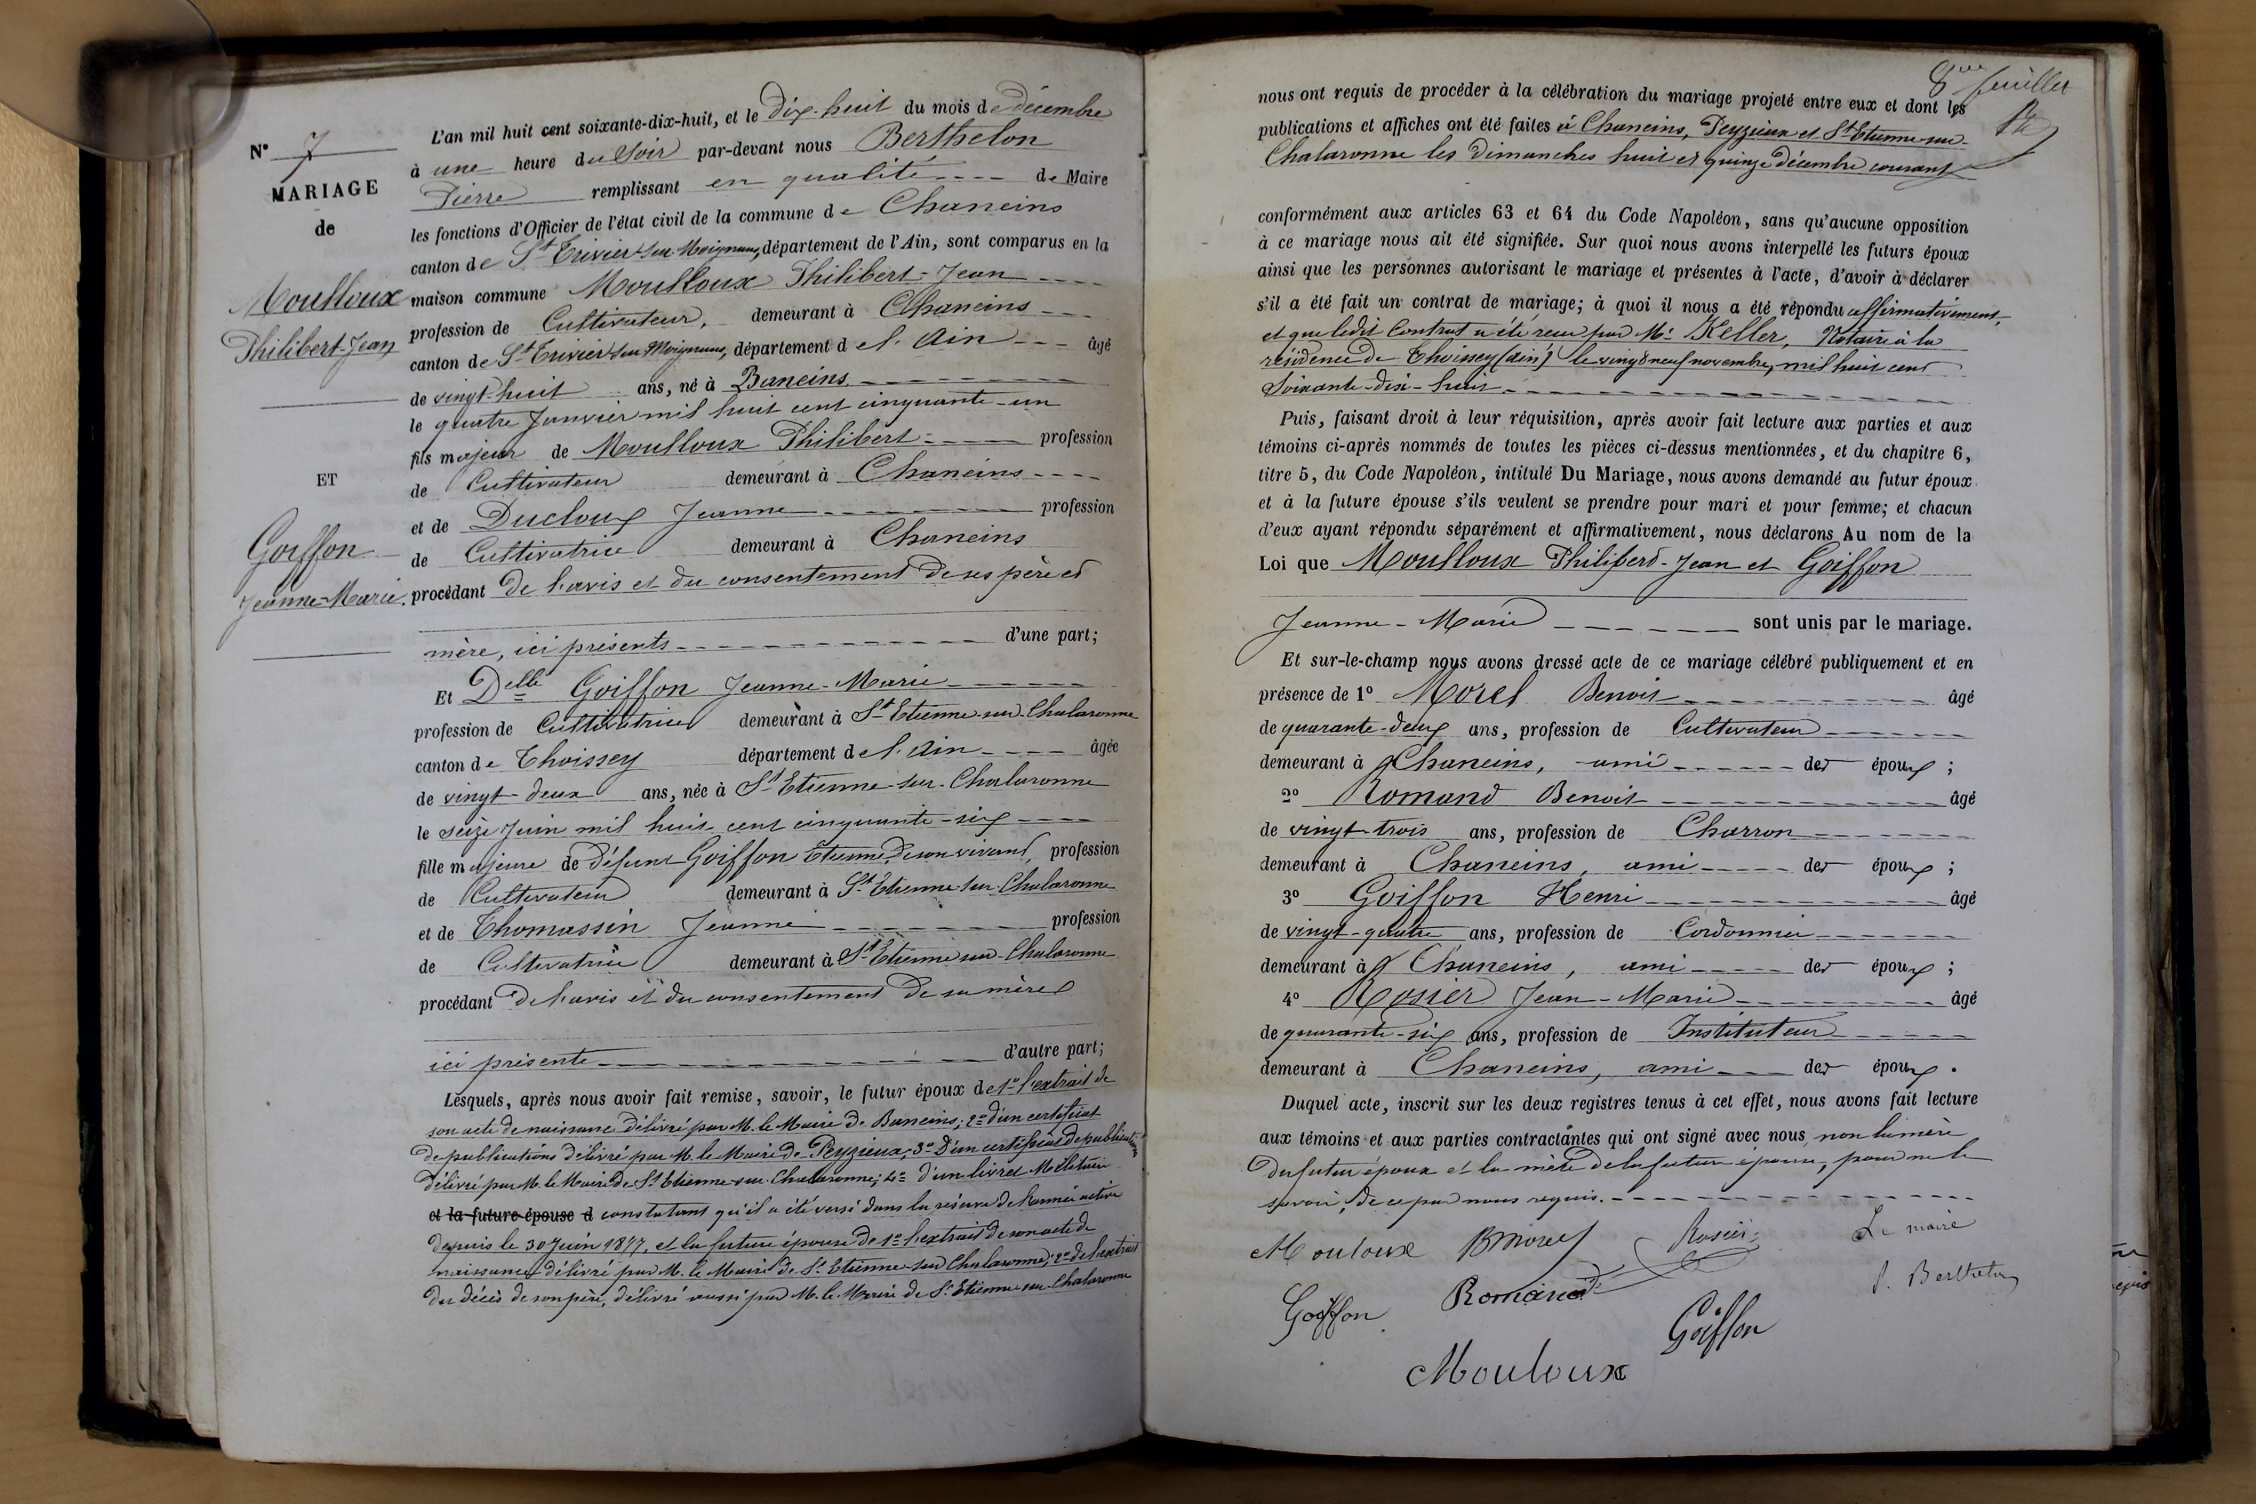 N° 7
MARIAGE
de
Moulloux
Philibert-Jean
ET
Goiffon
Jeanne-Marie.
L'an mil huit cent soixante-dix-huit, et le dix-huit du mois de décembre
à une heure du Soir par-devant nous Berthelon
Pierre remplissant en qualité de Maire
les fonctions d'Officier de l'état civil de la commune de Chaneins
canton de St Trivier sur Moignans, département de l'Ain, sont comparus en la
maison commune Moulloux Philibert-Jean
profession de Cultivateur, demeurant à Chaneins
canton de St Trivier sur Moignans, département de l'Ain âgé
de vingt-huit ans, né à Baneins
le quatre Janvier mil huit cent cinquante-un
fils majeur de Moulloux Philibert profession
de Cultivateur demeurant à Chaneins
et de Ducloux Jeanne profession
de Cultivatrice demeurant à Chaneins
procédant de l'avis et du consentement de ses père et
mère, ici présents d'une part;
Et Delle Goiffon Jeanne-Marie
profession de Cultivatrice demeurant à St Etienne-sur-Chalaronne
canton de Thoissey département de l'Ain âgée
de vingt-deux ans, née à St Etienne-sur-Chalaronne
le seize Juin mil huit cent cinquante-six
fille majeure de défunt Goiffon Etienne, de son vivant, profession
de Cultivateur demeurant à St Etienne-sur-Chalaronne
et de Thomassin Jeanne profession
de Cultivatrice demeurant à St Etienne-sur-Chalaronne
procédant de l'avis et du consentement de sa mère
ici présente d'autre part;
Lesquels, après nous avoir fait remise, savoir, le futur époux de 1° l'extrait de
son acte de naissance délivré par M. le Maire de Baneins; 2° d'un certificat
de publications délivré par M. le Maire de Peyzieux; 3° d'un certificat de publications
délivré par M. le Maire de St Etienne-sur-Chalaronne; 4° d'un livret Militaire
et la future épouse d constatant qu'il a été versé dans la réserve de l'armée active
depuis le 30 Juin 1877, et la future épouse de 1° l'extrait de son acte de
naissance délivré par M. le Maire de St Etienne-sur-Chalaronne; 2° de l'extrait
du décès de son père, délivré aussi par M. le Maire de St Etienne-sur-Chalaronne
8me feuillet
nous ont requis de procéder à la célébration du mariage projeté entre eux et dont les
publications et affiches ont été faites à Chaneins, Peyzieux et St Etienne-sur-
Chalaronne les dimanches huit et quinze décembre courant
conformément aux articles 63 et 64 du Code Napoléon, sans qu'aucune opposition
à ce mariage nous ait été signifiée. Sur quoi nous avons interpellé les futurs époux
ainsi que les personnes autorisant le mariage et présentes à l'acte, d'avoir à déclarer
s'il a été fait un contrat de mariage; à quoi il nous a été répondu affirmativement,
et que ledit Contrat a été reçu par Me Keller, Notaire à la
résidence de Thoissey (Ain) le vingt neuf novembre, mil huit cent
soixante-dix-huit.
Puis, faisant droit à leur réquisition, après avoir fait lecture aux parties et aux
témoins ci-après nommés de toutes les pièces ci-dessus mentionnées, et du chapitre 6,
titre 5, du Code Napoléon, intitulé Du Mariage, nous avons demandé au futur époux
et à la future épouse s'ils veulent se prendre pour mari et pour femme; et chacun
d'eux ayant répondu séparément et affirmativement, nous déclarons Au nom de la
Loi que Moulloux Philibert-Jean et Goiffon
Jeanne-Marie sont unis par le mariage.
Et sur-le-champ nous avons dressé acte de ce mariage célébré publiquement et en
présence de 1° Morel Benoit âgé
de quarante-deux ans, profession de Cultivateur
demeurant à Chaneins, ami des époux;
2° Romand Benoit âgé
de vingt-trois ans, profession de Charron
demeurant à Chaneins, ami des époux;
3° Goiffon Henri âgé
de vingt-quatre ans, profession de Cordonnier
demeurant à Chaneins, ami des époux;
4° Rosier Jean-Marie âgé
de quarante-six ans, profession de Instituteur
demeurant à Chaneins, ami des époux.
Duquel acte, inscrit sur les deux registres tenus à cet effet, nous avons fait lecture
aux témoins et aux parties contractantes qui ont signé avec nous, non la mère
du futur époux et la mère de la future épouse, pour ne le
savoir, de ce par nous requis.
Mouloux BMorel Rosier Le maire
Goiffon Romand P. Berthelon
Goiffon
Mouloux